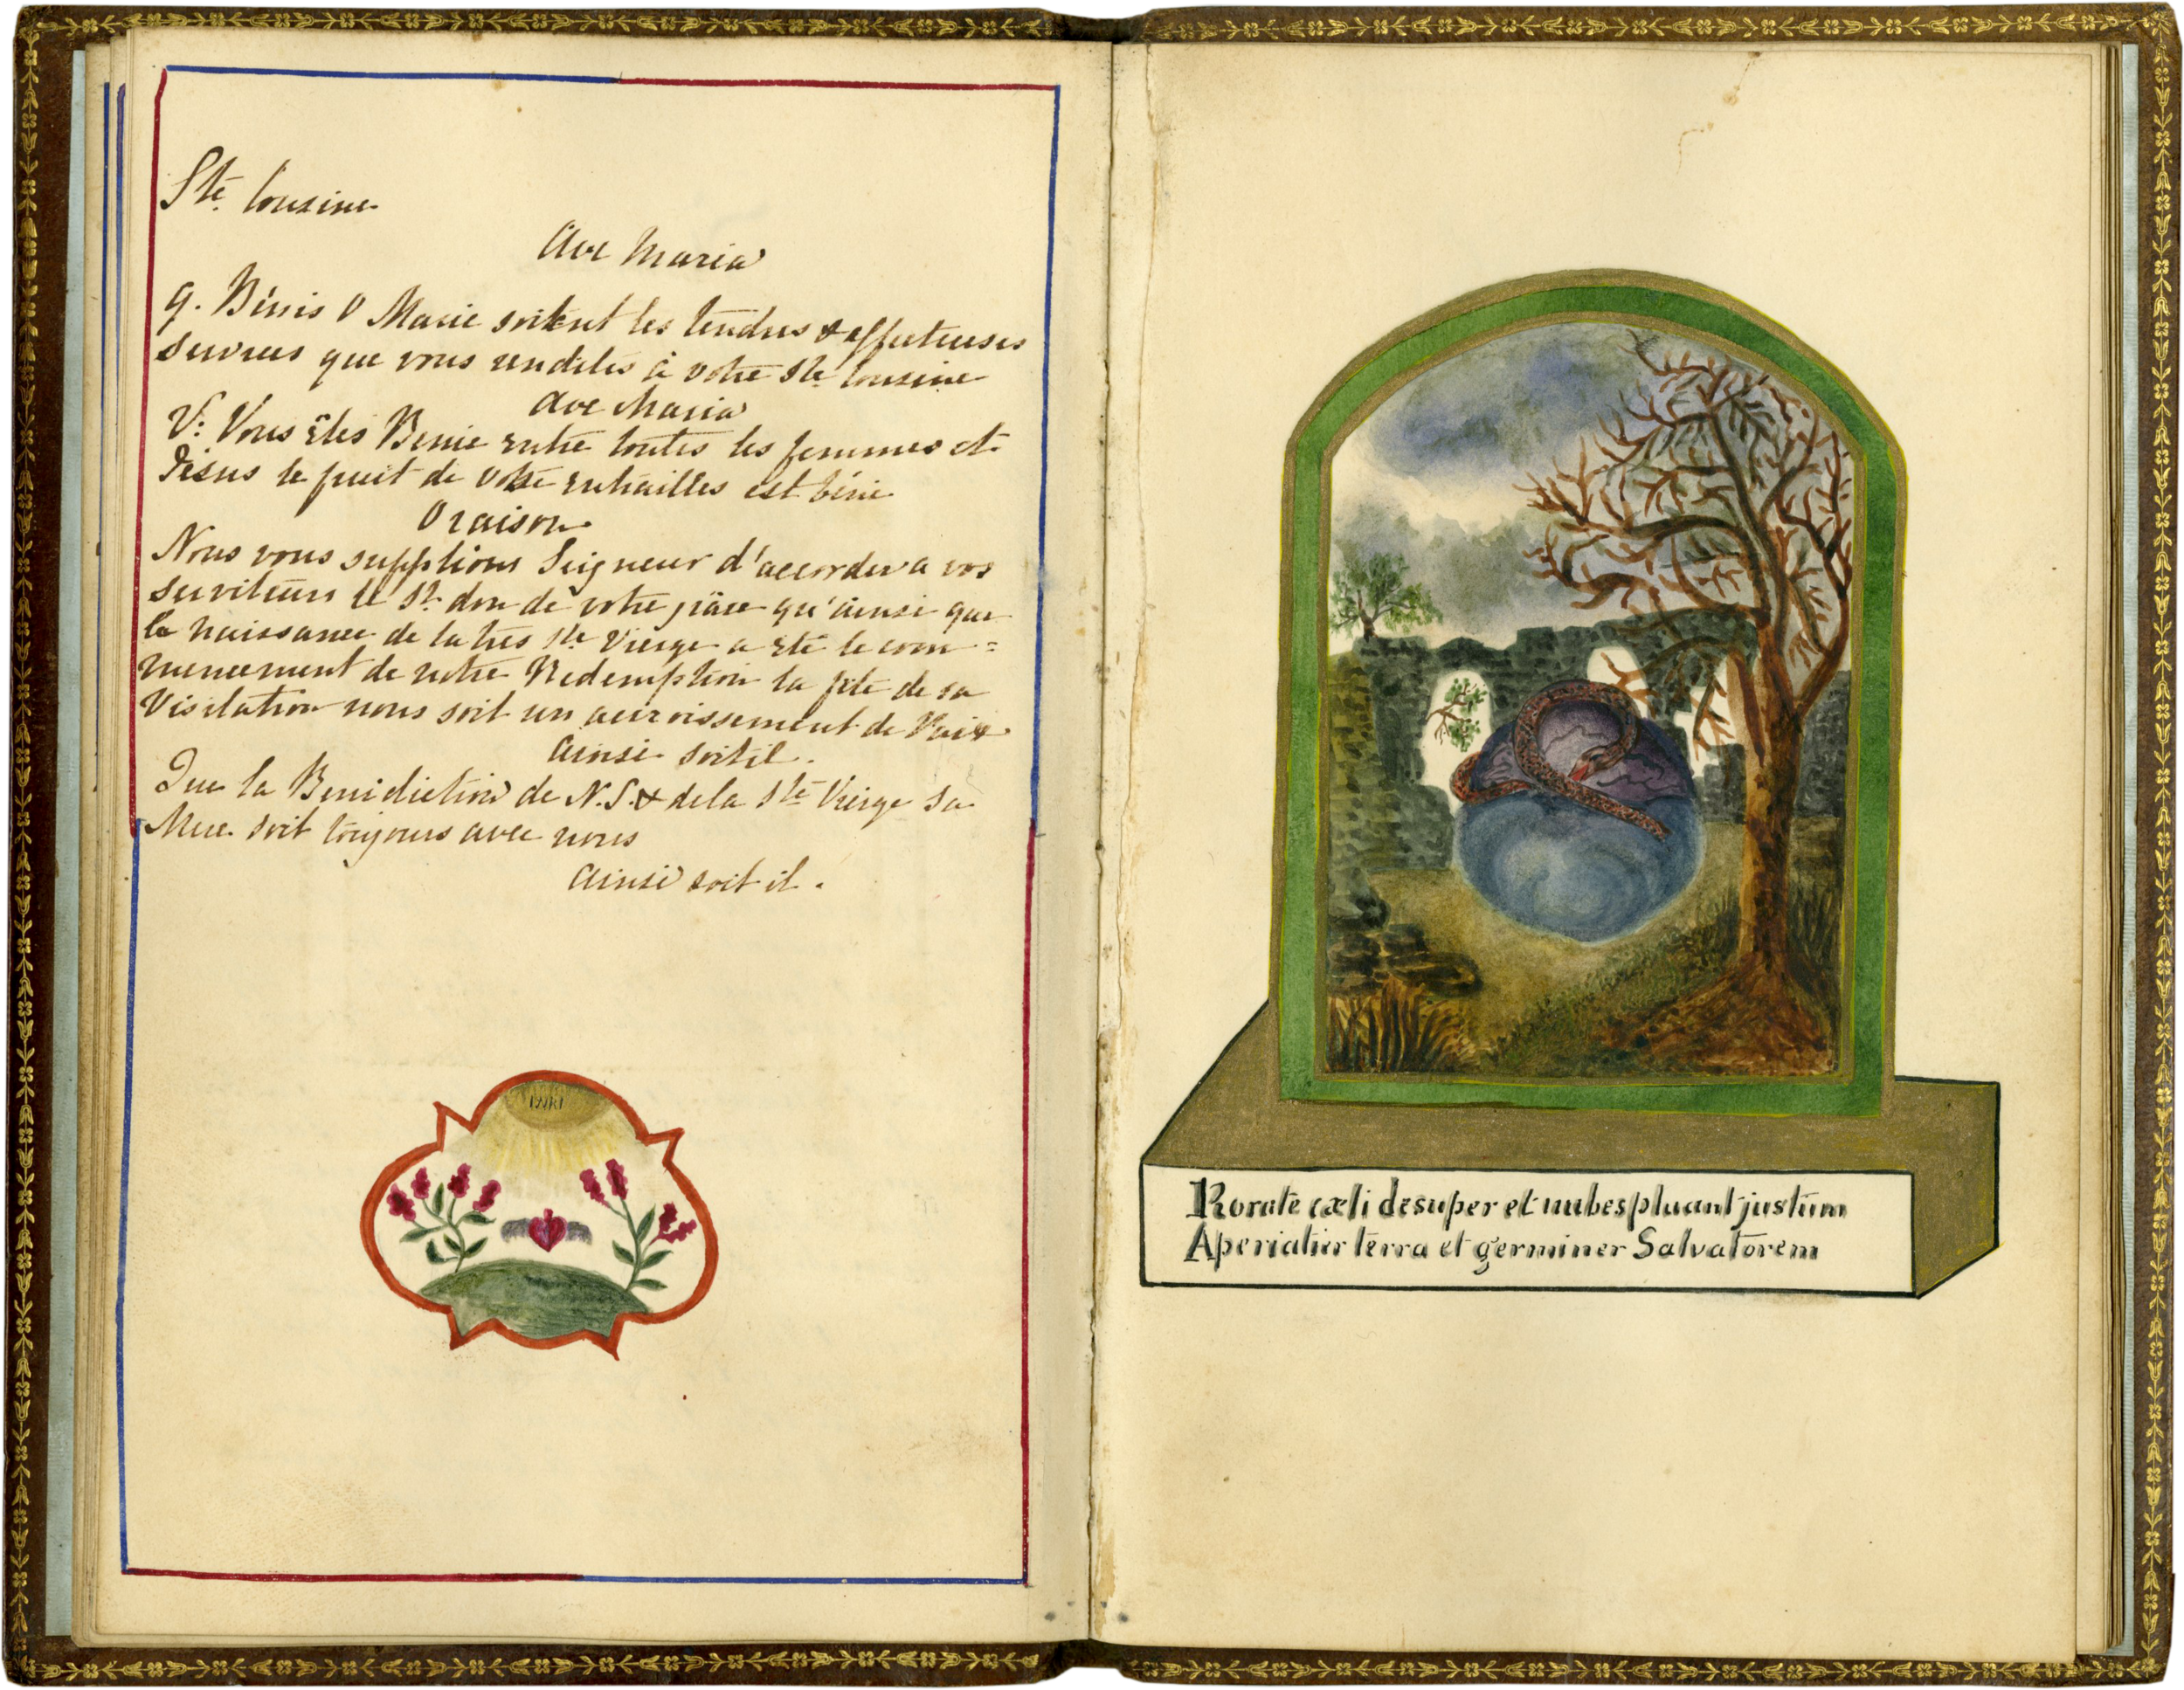 Ste Cousine
Ave Maria
9. Bénis O Marie soitent les tendres & affectueuses
services que vous rendites à votre Ste Cousine
Ave Maria
V: Vous Êtes Benie entre toutes les femmes et
Jésus le fruit de votre entrailles est bénie
Oraison
Nous vous supplions Seigneur d'accorder a vos
serviteurs le St don de votre qu'ainsi que
la naissance de la très Ste Vierge a Eté le com=
mencement de notre Redemption la fête de sa
Visitation nous soit un accroissement de Paix
Ainsi soitil.
Que la Benediction de N.S. & dela Ste Vierge sa
Mere soit toujours avec nous
Ainsi soit il.
INRI
Rorate cæli desuper et nubes pluant justum
Aperiatur terra et germiner Salvatorem